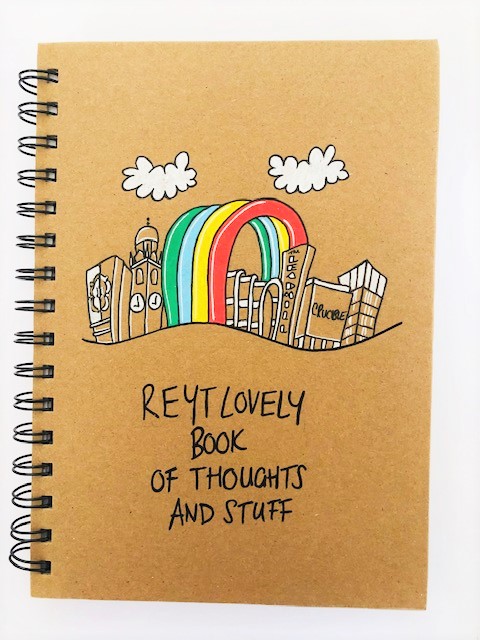 CRUCIBLE
REYT LOVELY
BOOK
OF THOUGHTS
AND STUFF